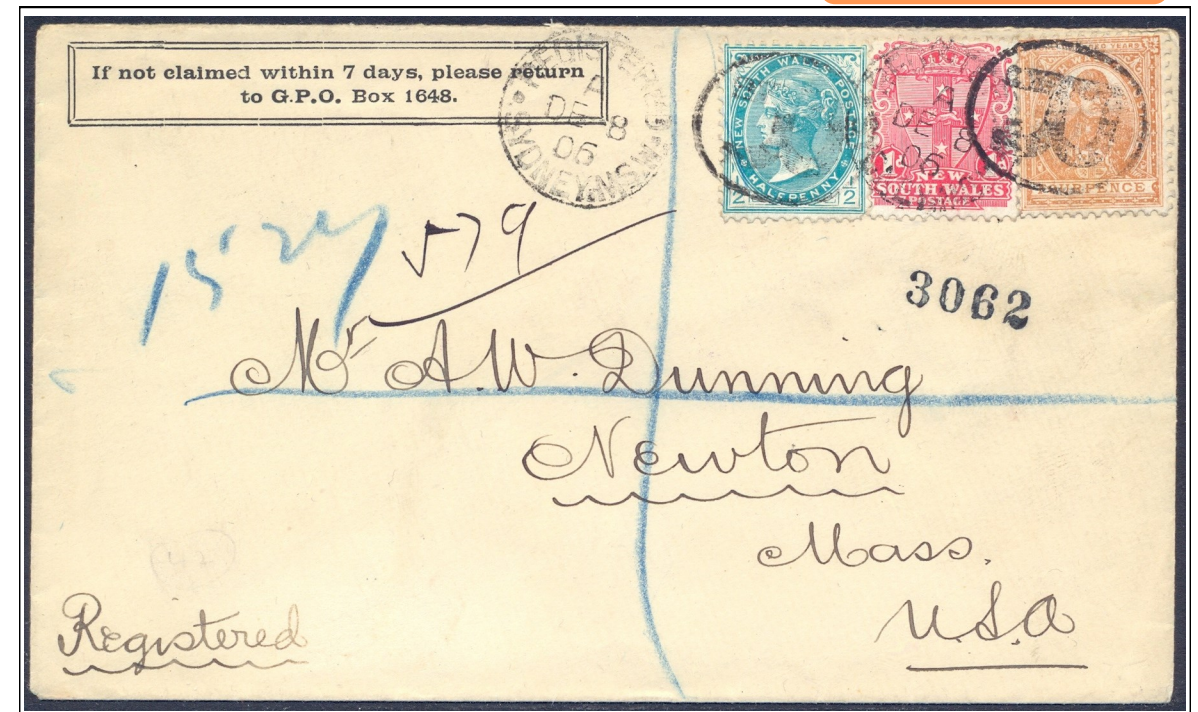 If not claimed within 7 days, please return
to G.P.O. Box 1648.
REGISTERED
A
DE 8
06
SYDNEY N.S.W
NEW SOUTH WALES POSTAGE
HALFPENNY
½ ½
A
DE 8
06
1d
NEW
SOUTH WALES
POSTAGE
15 24
579
3062
Mr A.W. Dunning
Newton
Mass.
U.S.A
Registered